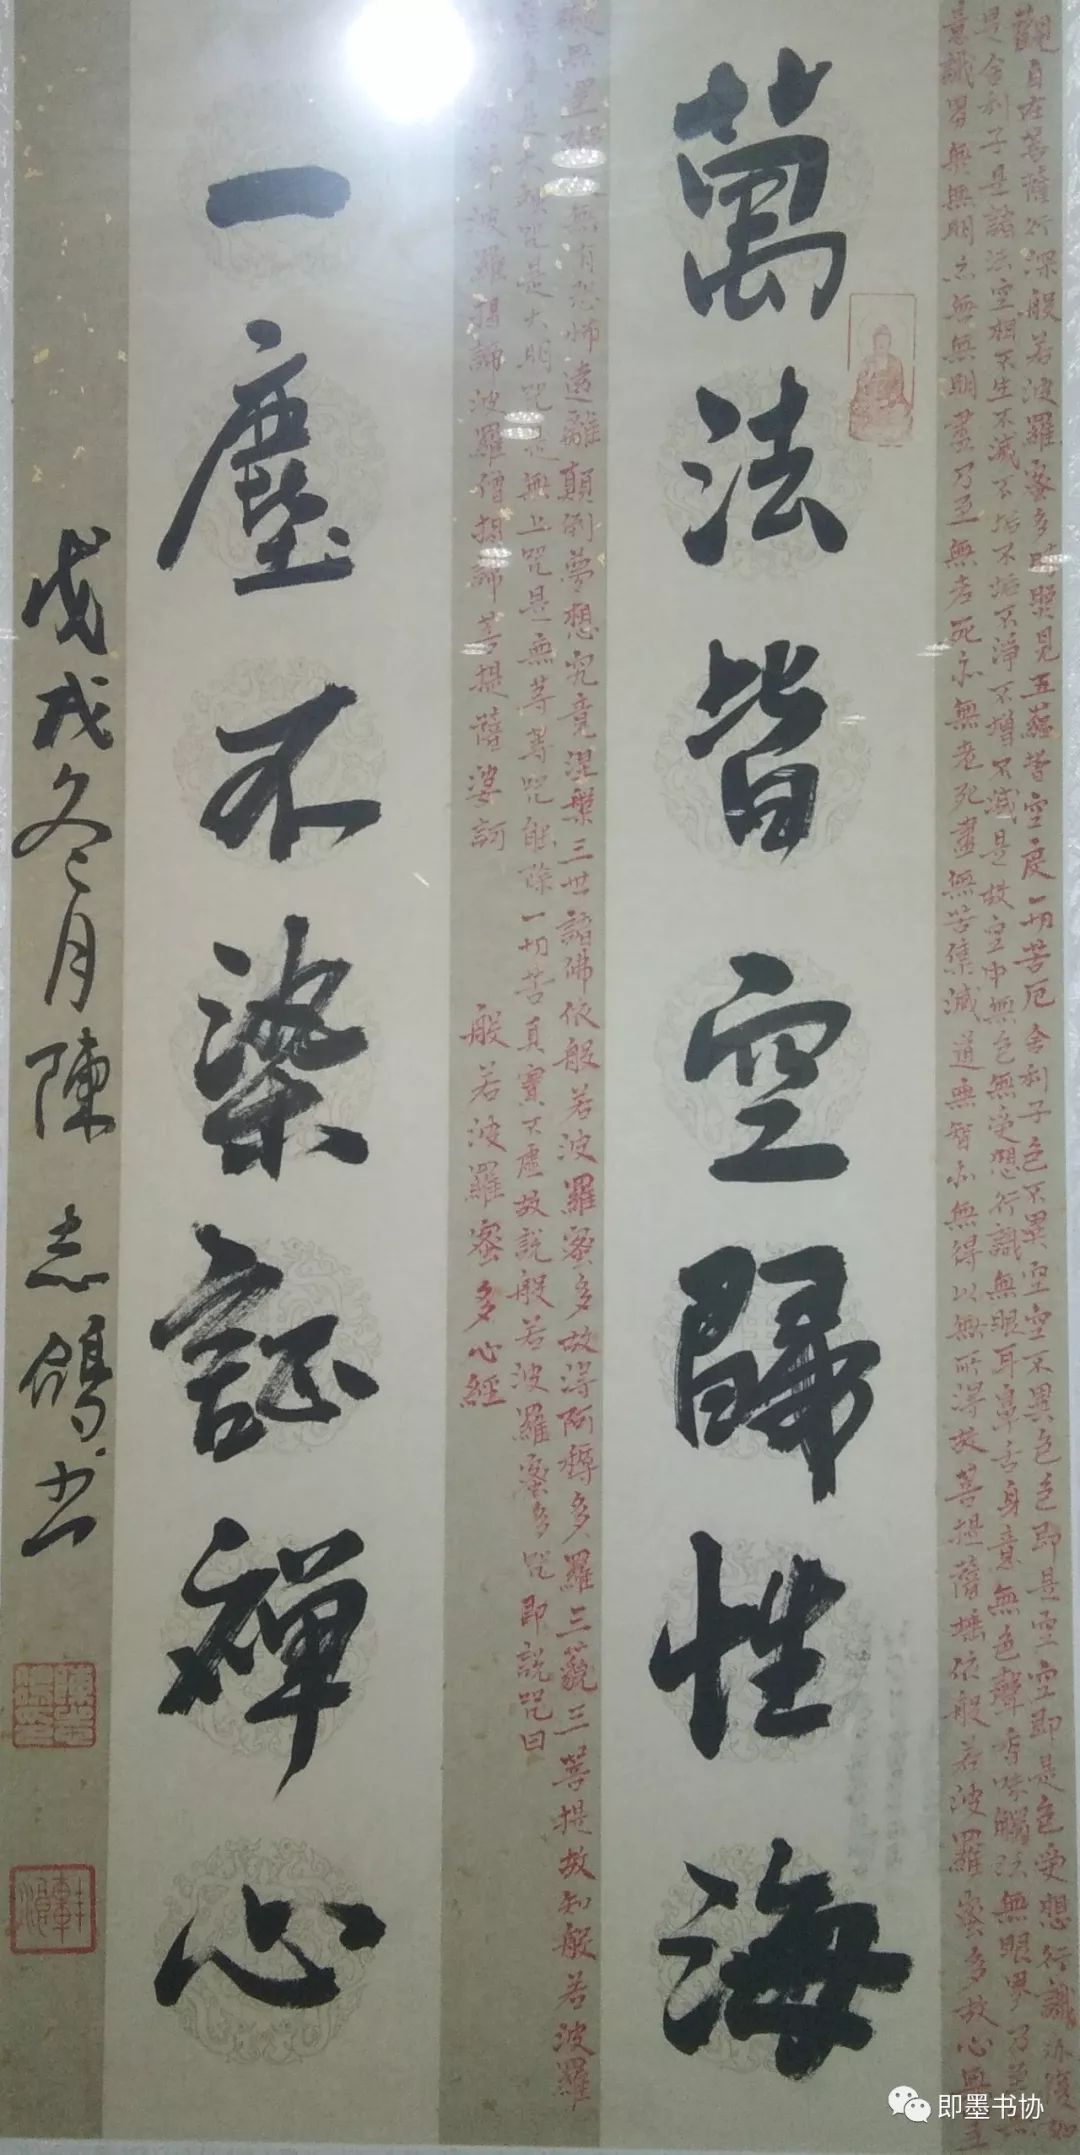 觀自在菩薩行深般若波羅蜜多時照見五蘊皆空度一切苦厄舍利子色不異空空不異色色即是空空即是色受想行識亦復如
是舍利子是諸法空相不生不滅不垢不淨不增不減是故空中無色無受想行識無眼耳鼻舌身意無色聲香味觸法無眼界乃至無
意識界無無明亦無無明盡乃至無老死亦無老死盡無苦集滅道無智亦無得以無所得故菩提薩埵依般若波羅蜜多故心無
萬法皆空歸性海
無有恐怖遠離顛倒夢想究竟涅槃三世諸佛依般若波羅蜜多故得阿耨多羅三藐三菩提故知般若波羅
是大明咒是無上咒是無等等咒能除一切苦真實不虛故說般若波羅蜜多咒即說咒曰
波羅揭諦波羅僧揭諦菩提薩婆訶
般若波羅蜜多心經
一塵不染証禪心
戊戌冬月陳志鴿书
即墨书协